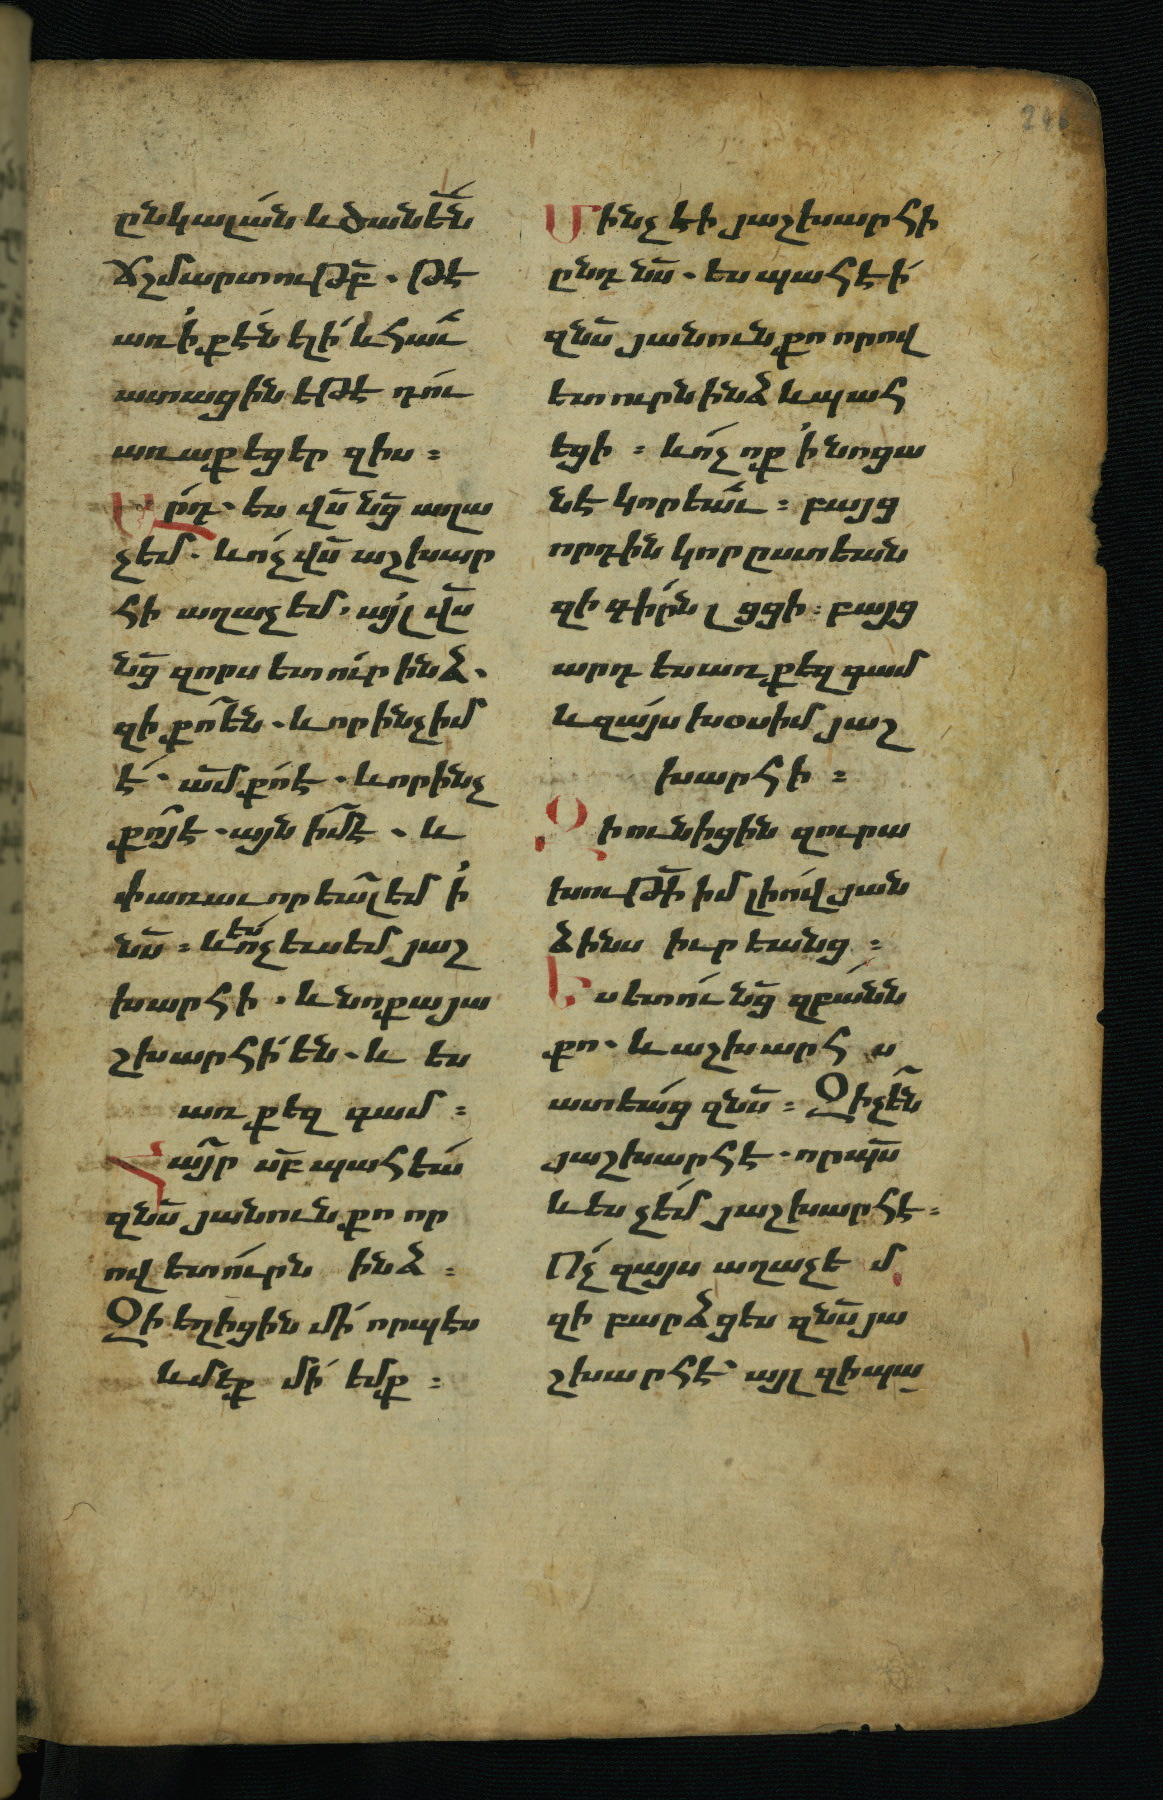 ընկալան և ծանեն
ճշմարտութբ. թէ
առ ՛ի քէն ելի և հաւ
ատացին եթէ դու
առաքեցեր զիս։
Արդ. ես վս նց աղա
չեմ. և ոչ վս աշխար
հի աղաչեմ. այլ վս
նց զորս ետուր ինձ.
զի քո են. և որ ինչ իմ
է. ամ քո է. և որ ինչ
քոյ է. այն իմ է. և
փառաւորեալ եմ ՛ի
նս։ և ոչ ևս եմ յաշ
ես
խարհի. և նոքա յա
շխարհի են. և ես
առ քեզ գամ։
Հայր սբ պահեա
զնս յանուն քո որ
ով ետուրն ինձ։
Զի եղիցին մի որպէս
և մեք մի եմք։
Մինչ էի յաշխարհի
ընդ նս. ես պահէի
զնս յանուն քո որով
ետուրն ինձ և պահ
եցի։ և ոչ ոք ՛ի նոցա
նէ կորեաւ։ բայց
որդին կորըստեան
զի գիրն լցցի։ բայց
արդ ես առ քեզ գամ
և զայս խօսիմ յաշ
խարհի։
Զի ունիցին զուրա
խութի իմ լիով յան
ձինս իւրեանց։
Ես ետու նց զբանն
քո. և աշխարհս
ատեաց զնս։ Զի չեն
յաշխարհէ. որպս
և ես չեմ յաշխարհէ։
Ոչ զայս աղաչեմ
զի բարձցես զնս յա
շխարհէ՝ այլ զի պա